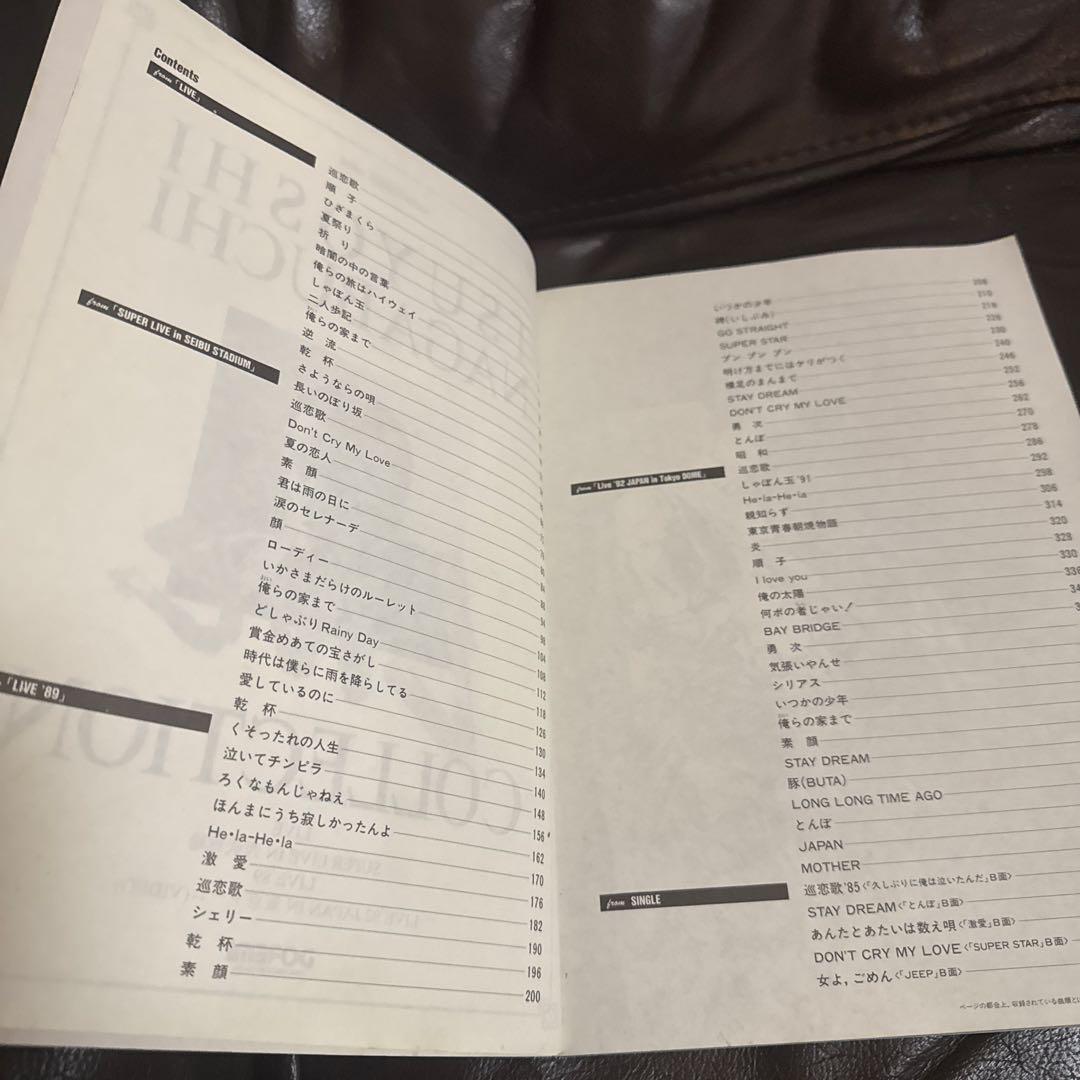 Contents
from「LIVE」
巡恋歌
順 子
ひざまくら
夏祭り
祈 り
暗闇の中の言葉
俺らの旅はハイウェイ
しゃぼん玉
二人歩記
俺らの家まで
逆 流
乾 杯
from「SUPER LIVE in SEIBU STADIUM」
さようならの唄
長いのぼり坂
巡恋歌
Don't Cry My Love
夏の恋人
素 顔
君は雨の日に
涙のセレナーデ
顔
ローディー
いかさまだらけのルーレット
俺らの家まで 94
どしゃぶりRainy Day 98
賞金めあての宝さがし 104
時代は僕らに雨を降らしてる 108
愛しているのに 112
乾 杯 118
「LIVE '89」
くそったれの人生 126
泣いてチンピラ 130
ろくなもんじゃねえ 134
ほんまにうち寂しかったんよ 140
He・la-He・la 148
激 愛 156
巡恋歌 162
シェリー 170
乾 杯 176
素 顔 182
190
196
200
いつかの少年 206
碑(いしぶみ) 210
GO STRAIGHT 218
SUPER STAR 226
ブン ブン ブン 230
明け方までにはケリがつく 240
裸足のまんまで 246
STAY DREAM 252
DON'T CRY MY LOVE 256
勇 次 262
とんぼ 270
昭 和 278
from「Live '92 JAPAN in Tokyo DOME」
巡恋歌 286
しゃぼん玉'91 292
He・la-He・la 298
親知らず 306
東京青春朝焼物語 314
炎 320
順 子 328
I love you 330
俺の太陽 336
何ボの者じゃい!
BAY BRIDGE
勇 次
気張いやんせ
シリアス
いつかの少年
俺らの家まで
素 顔
STAY DREAM
豚(BUTA)
LONG LONG TIME AGO
とんぼ
JAPAN
MOTHER
from SINGLE
巡恋歌'85〈「久しぶりに俺は泣いたんだ」B面〉
STAY DREAM〈「とんぼ」B面〉
あんたとあたいは数え唄〈「激愛」B面〉
DON'T CRY MY LOVE〈「SUPER STAR」B面〉
女よ, ごめん〈「JEEP」B面〉
ページの都合上, 収録されている曲順とは